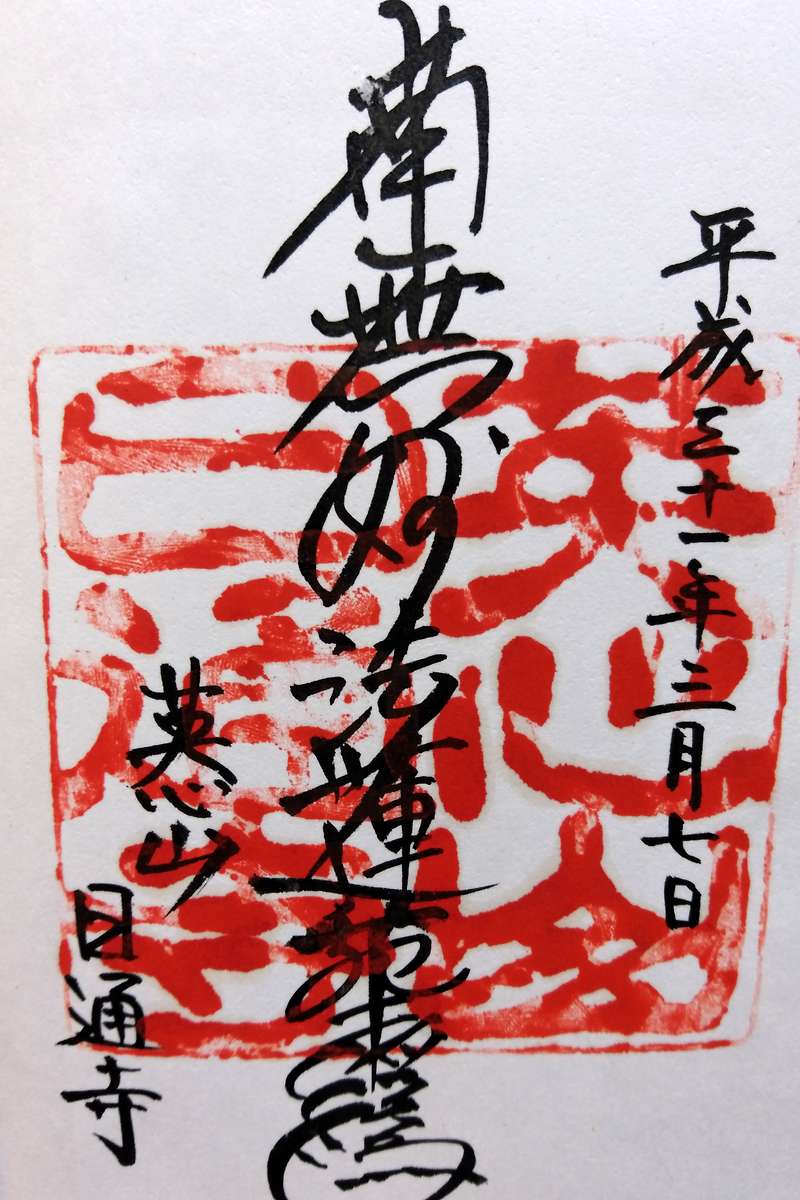 平成三十一年三月七日
南無妙法蓮華経
英心山
日通寺